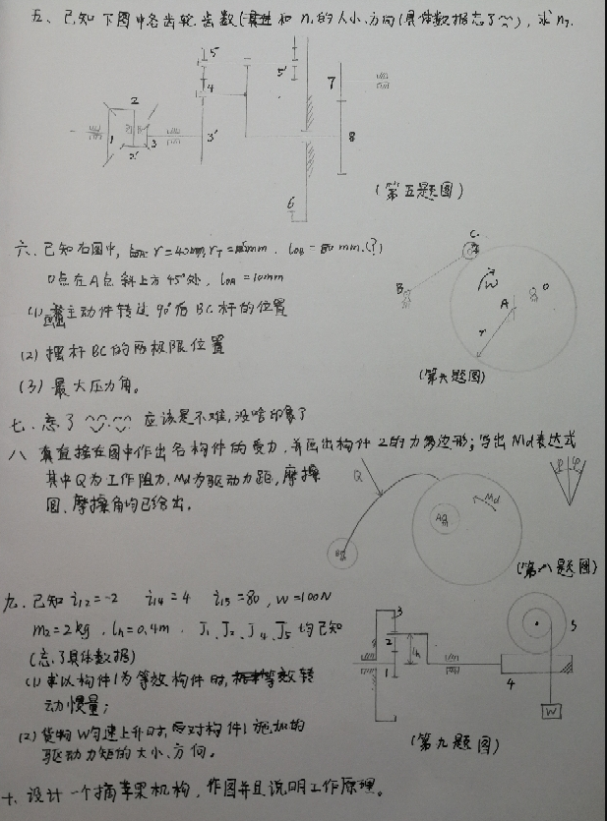 五、已知下图中各齿轮齿数(和n₁的大小、方向(具体数据忘了),求n₇.
2
1
2'
3
5
4
3'
5'
6
7
8
(第五题图)
六、已知右图中, r=40mm, mm. l_OB=80mm.(?)
O点在A点斜上方45°处, l_OA=10mm
(1) 主动件转过90°后BC杆的位置
(2) 摆杆BC的两极限位置
(3) 最大压力角。
C
B
W
A
O
r
(第六题图)
七、忘了 应该是不难,没啥印象了
八 直接在图中作出各构件的受力,并画出构件2的力多边形;写出Md表达式
其中Q为工作阻力,Md为驱动力距,摩擦
圆、摩擦角均已给出。
Q
Md
A
B
φ φ
(第八题图)
九、已知 i₁₂=-2 i₁₄=4 i₁₅=80, W=100N
m₂=2kg . l_h=0.4m . J₁、J₂、J₄、J₅均已知
(忘了具体数据)
(1) 求以构件1为等效构件时,等效转
动惯量;
(2) 货物W匀速上升时,应对构件1施加的
驱动力矩的大小、方向。
3
2
1
h
4
5
W
(第九题图)
十、设计一个摘苹果机构,作图并且说明工作原理。